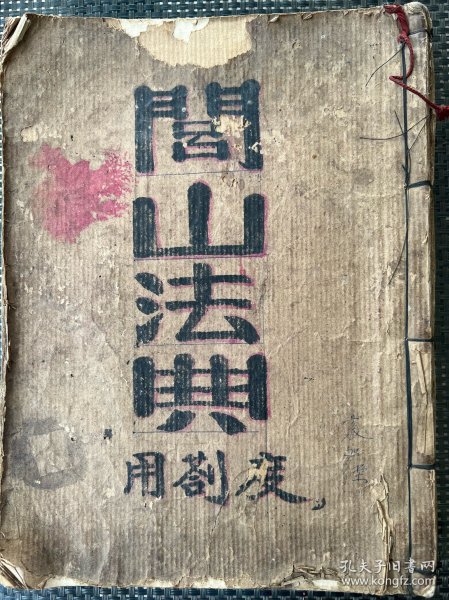 閭山法典
劄用
孔夫子旧书网
www.kongfz.com